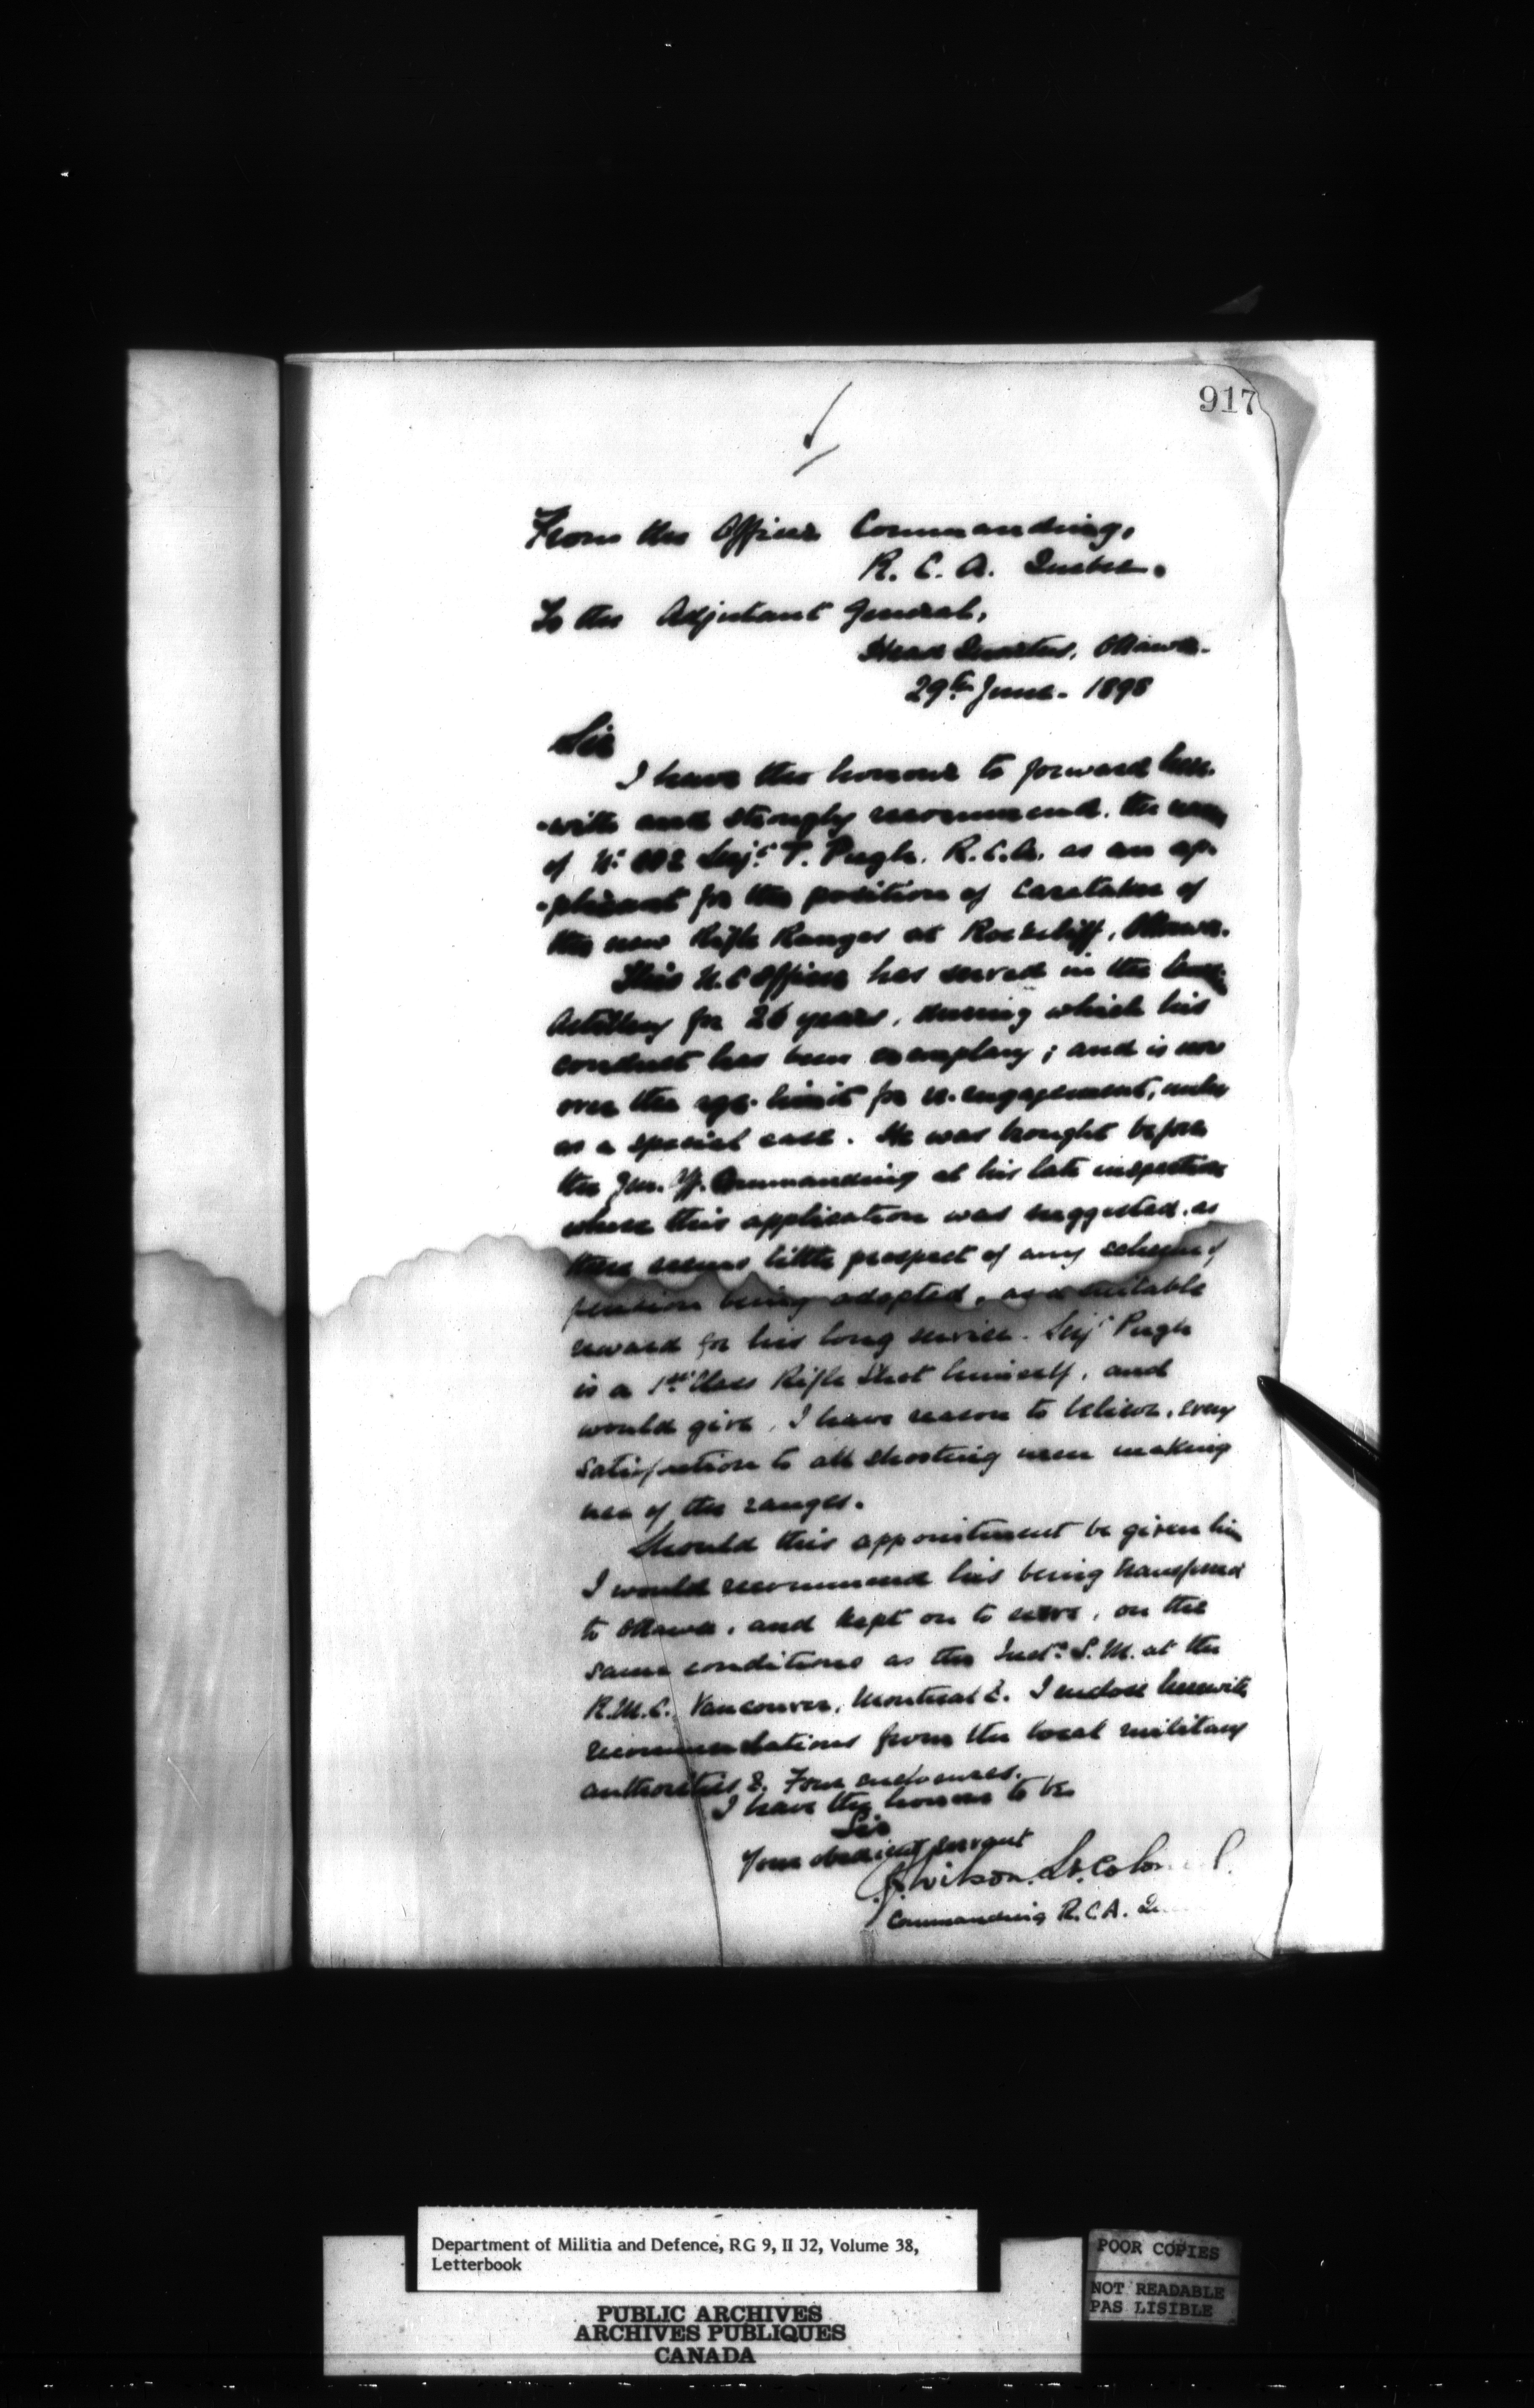 917
From the Officer Commanding,
R. C. A. Quebec.
To the Adjutant General,
Head Quarters, Ottawa.
29th June. 1898
Sir
I have the honour to forward here
-with and strongly recommend, the name
of Serjt T. Pugh. R.C.A. as an ap-
-plicant for the position of Caretaker of
the new Rifle Ranges at Rockcliff, Ottawa.
This N.C Officer has served in the
Artillery for 26 years, during which his
conduct has been exemplary; and is now
over the age limit for re-engagement, unless
as a special case. He was brought before
the Gen. Of. Commanding at his late inspection
where this application was suggested, as
there seems little prospect of any scheme of
pension being adopted, as a suitable
reward for his long service. Serjt Pugh
is a 1st Class Rifle Shot himself, and
would give, I have reason to believe, every
satisfaction to all shooting men making
use of the ranges.
Should this appointment be given him
I would recommend his being transferred
to Ottawa, and kept on to serve, on the
same conditions as the S. M. at the
R.M.C., Vancouver, Montreal &. I enclose herewith
recommendations from the local military
authorities &. Four enclosures.
I have the honour to be
Sir
Your obedient servant
Wilson. Lt. Colonel.
Commanding R.C.A.
Department of Militia and Defence, RG 9, II J2, Volume 38,
Letterbook
PUBLIC ARCHIVES
ARCHIVES PUBLIQUES
CANADA
POOR COPIES
NOT READABLE
PAS LISIBLE